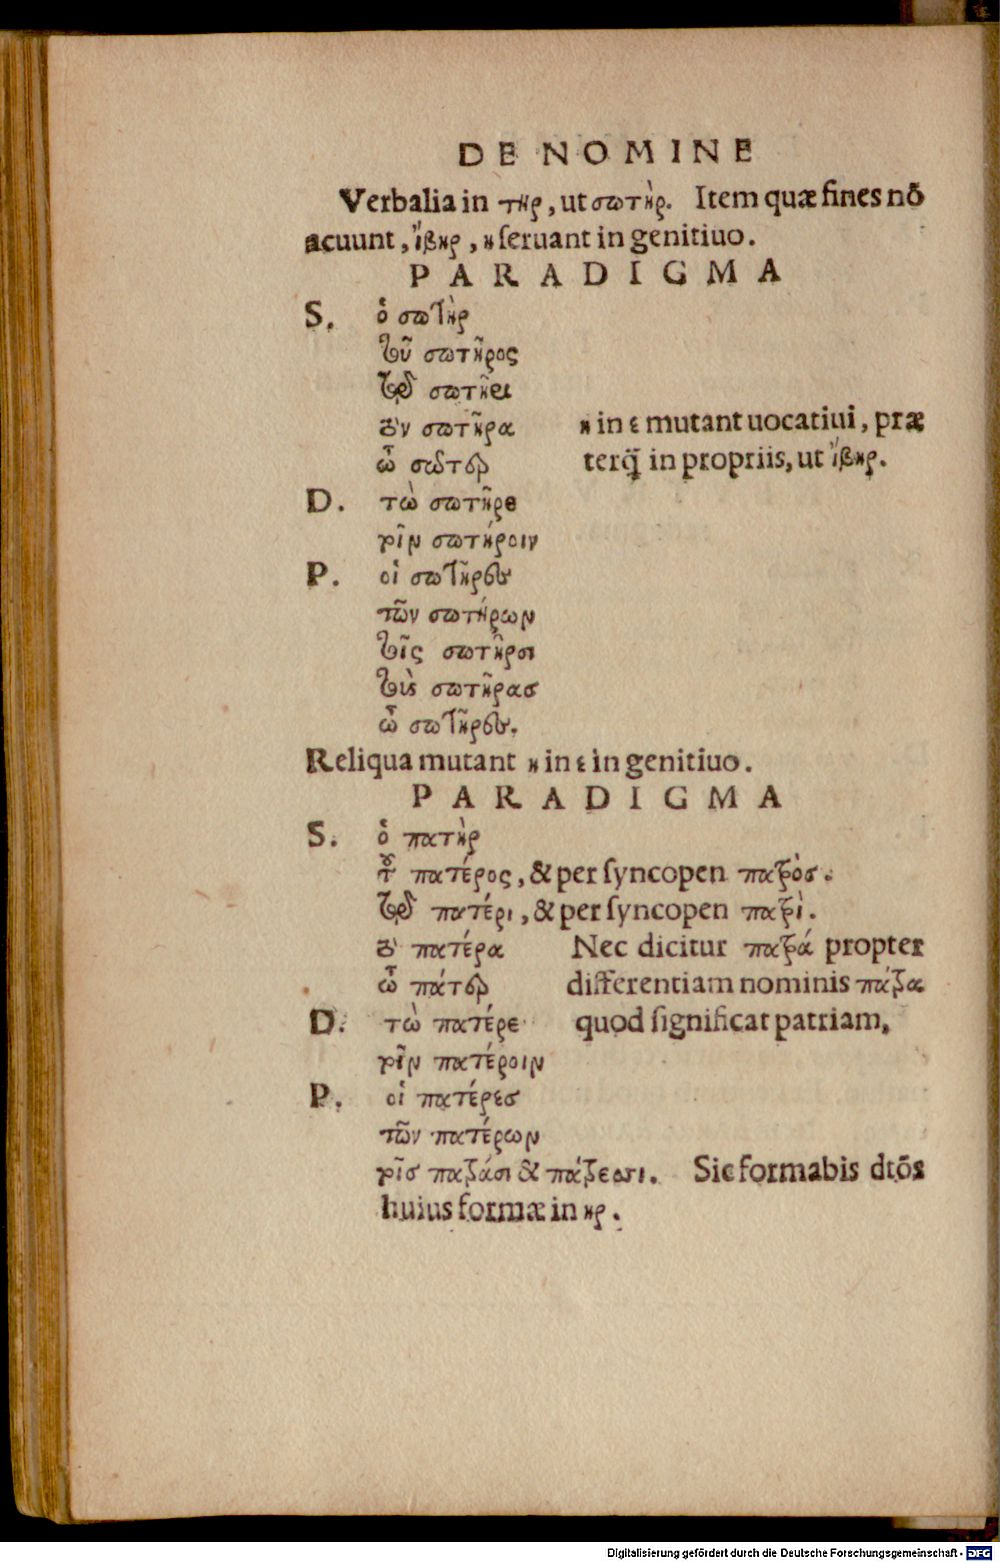 DE NOMINE
Verbalia in τηρ, ut σωτὴρ. Item quæ fines nō
acuunt, ἴβηρ, η ſeruant in genitiuo.
PARADIGMA
S. ὁ σωτὴρ
τοῦ σωτῆρος
τῷ σωτῆρι
τὸν σωτῆρα η in ε mutant uocatiui, præ
ὦ σῶτερ terq̃ in propriis, ut ἴβηρ.
D. τὼ σωτῆρε
τοῖν σωτήροιν
P. οἱ σωτῆρες
τῶν σωτήρων
τοῖς σωτῆρσι
τοὺς σωτῆρασ
ὦ σωτῆρες.
Reliqua mutant η in ε in genitiuo.
PARADIGMA
S. ὁ πατὴρ
τοῦ πατέρος, & per ſyncopen πατρὸς.
τῷ πατέρι, & per ſyncopen πατρὶ.
τὸν πατέρα Nec dicitur πατρά propter
ὦ πάτερ differentiam nominis πάτρα
D. τὼ πατέρε quod ſignificat patriam,
τοῖν πατέροιν
P. οἱ πατέρεσ
τῶν πατέρων
τοῖσ πατράσι & πάτρεσσι. Sic formabis dtōs
huius formæ in ηρ.
Digitalisierung gefördert durch die Deutsche Forschungsgemeinschaft - DFG